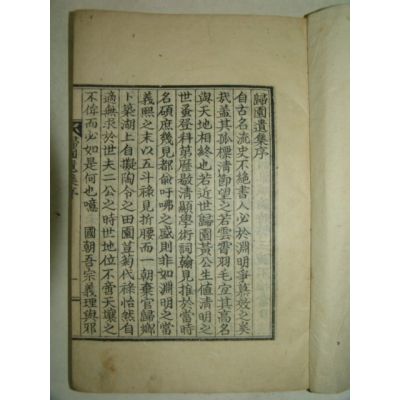 歸園遺集序
自古名流史不絶書人必於淵明致慕之奚
哉盖其孤標淸節望之若雲霄羽毛宜其高名
與天地相終也若近世歸園黃公生値淸明之
世蚤登科第歷敭淸顯學術詞翰見推於當時
名碩庶幾見都兪吁咈之盛則非如淵明之當
義熙之末以五斗祿見折腰而一朝棄官歸鄕
卜築湖上自擬陶令之田園荁萄代祿怡然自
適無求於世夫二公之時世地位不啻天壤之
不侔而必如是何也噫 國朝吾宗義理與邪
歸園遺集序 一